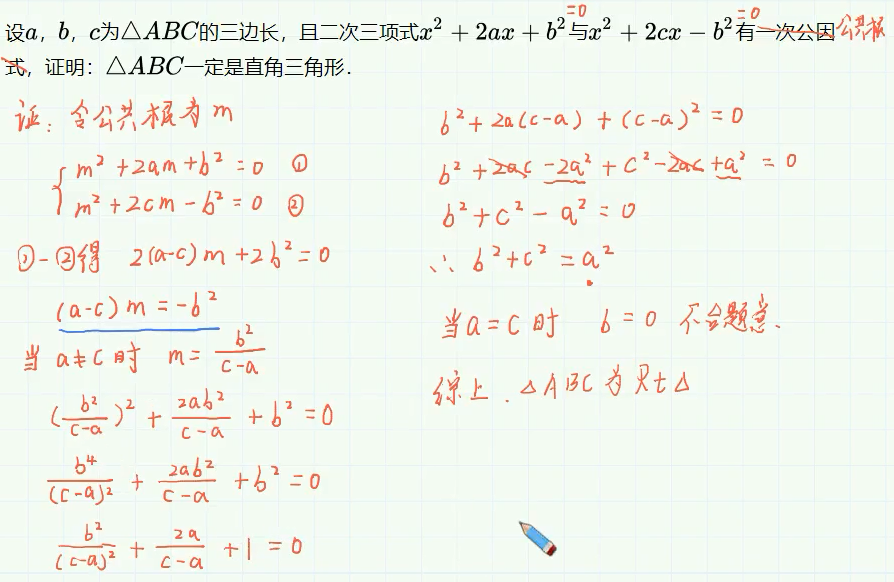 设a，b，c为△ABC的三边长，且二次三项式x²+2ax+b²=0与x²+2cx−b²=0有一次公因公共根
式，证明：△ABC一定是直角三角形．
证：令公共根为m
{m²+2am+b²=0 ①
m²+2cm−b²=0 ②
①−②得 2(a−c)m+2b²=0
(a−c)m=−b²
当a≠c时 m=b²/(c−a)
(b²/(c−a))²+2ab²/(c−a)+b²=0
b⁴/(c−a)²+2ab²/(c−a)+b²=0
b²/(c−a)²+2a/(c−a)+1=0
b²+2a(c−a)+(c−a)²=0
b²+2ac−2a²+c²−2ac+a²=0
b²+c²−a²=0
∴ b²+c²=a²
当a=c时 b=0 不合题意.
综上．△ABC为Rt△